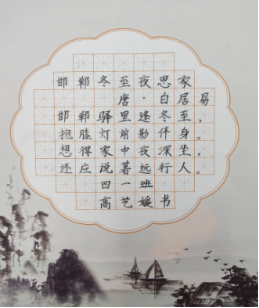 邯郸冬至夜思家
唐·白居易
邯郸驿里逢冬至,
抱膝灯前影伴身。
想得家中夜深坐,
还应说着远行人。
四一班
高艺媛书